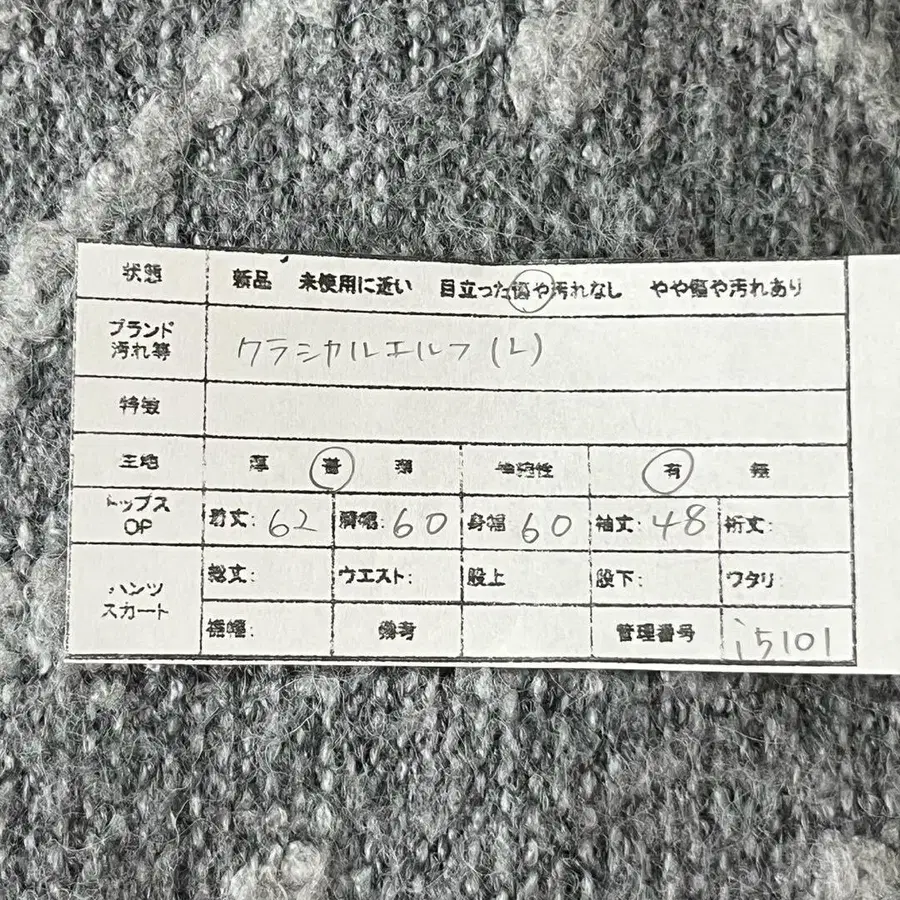 状態 新品 未使用に近い 目立った傷や汚れなし やや傷や汚れあり
ブランド
汚れ等 クラシカルエルフ (L)
特徴
生地 厚 普 薄 伸縮性 有 無
トップス
OP 着丈: 62 肩幅: 60 身幅 60 袖丈: 48 裄丈:
パンツ
スカート 総丈: ウエスト: 股上 股下: ワタリ:
裾幅: 備考 管理番号 i5101